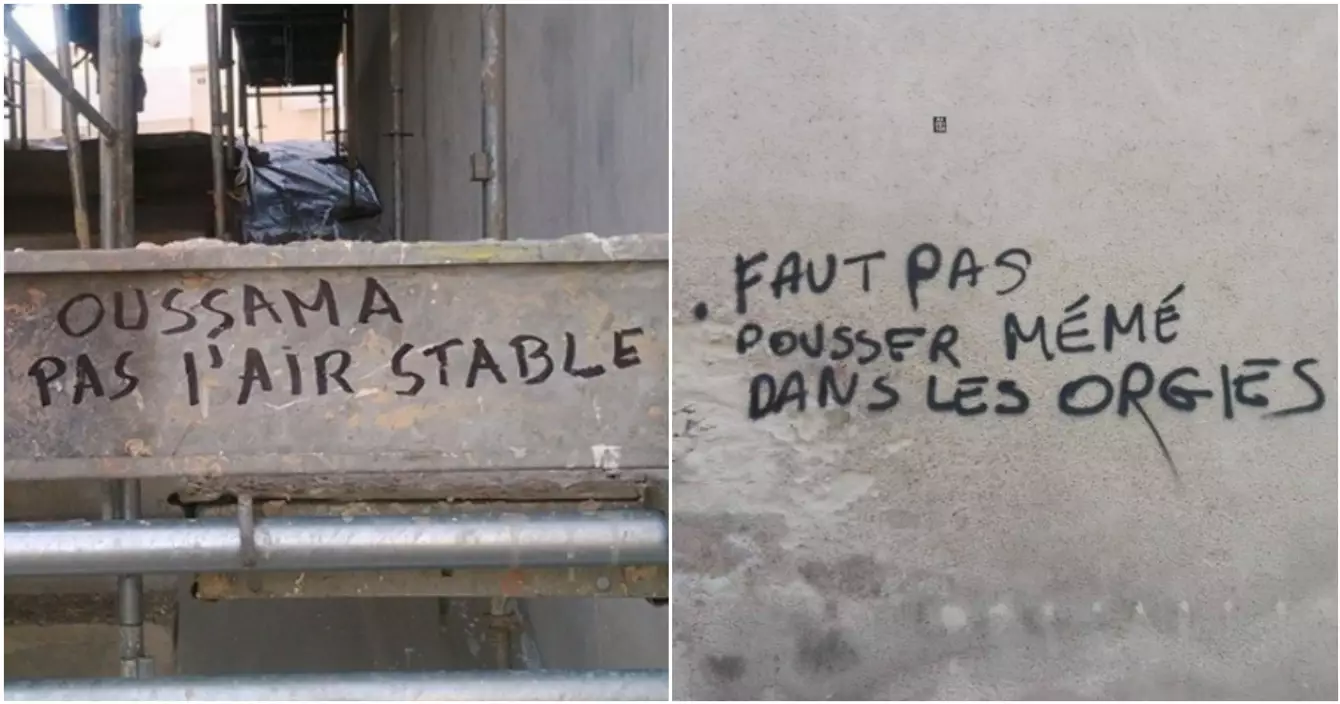 OUSSAMA
PAS l'AiR STABLE
FAUT PAS
POUSSER MÉMÉ
DANS LES ORGIES